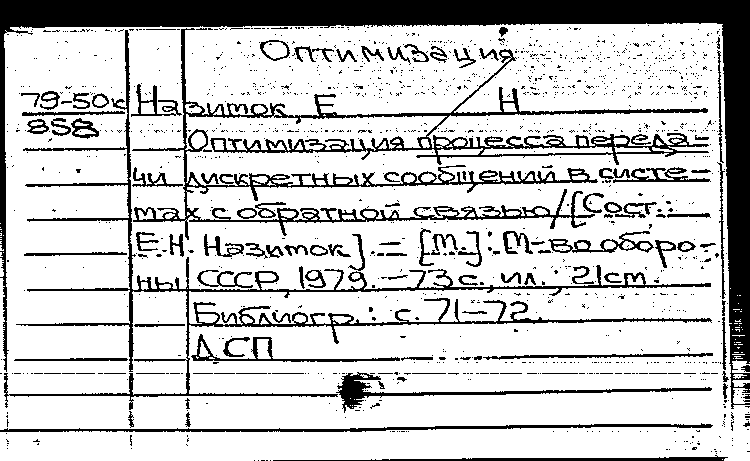 Оптимизация
79-50к Назиток, Е Н
858
Оптимизация процесса переда-
чи дискретных сообщений в систе-
мах с обратной связью/[Сост.:
Е.Н. Назиток]. — [М.]: М-во оборо-
ны СССР, 1979. — 73 с., ил.; 21 см.
Библиогр.: с. 71—72.
ДСП